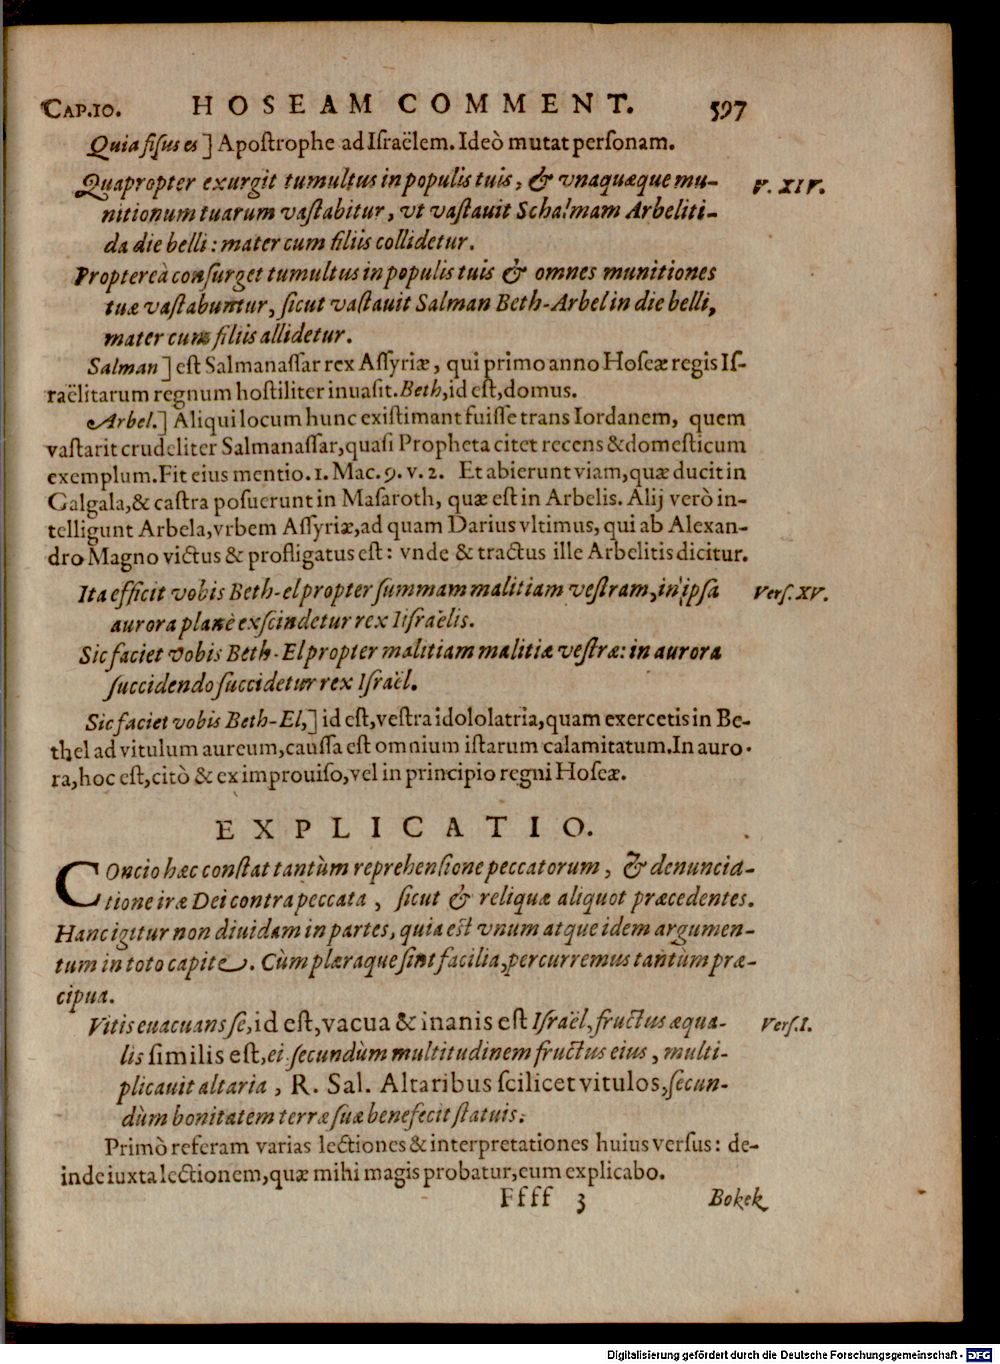 CAP.10. HOSEAM COMMENT. 597
Quia fisus es] Apostrophe ad Israëlem. Ideò mutat personam.
Quapropter exurgit tumultus in populis tuis, & vnaquæque mu- V. XIV.
nitionum tuarum vastabitur, vt vastauit Schalmam Arbeliti-
da die belli: mater cum filiis collidetur.
Propterea consurget tumultus in populis tuis & omnes munitiones
tuæ vastabuntur, sicut vastauit Salman Beth-Arbel in die belli,
mater cum filiis allidetur.
Salman] est Salmanassar rex Assyriæ, qui primo anno Hoseæ regis Is-
raëlitarum regnum hostiliter inuasit. Beth, id est, domus.
Arbel.] Aliqui locum hunc existimant fuisse trans Iordanem, quem
vastarit crudeliter Salmanassar, quasi Propheta citet recens & domesticum
exemplum. Fit eius mentio. 1. Mac. 9. v. 2. Et abierunt viam, quæ ducit in
Galgala, & castra posuerunt in Masaroth, quæ est in Arbelis. Alij verò in-
telligunt Arbela, vrbem Assyriæ, ad quam Darius vltimus, qui ab Alexan-
dro Magno victus & profligatus est: vnde & tractus ille Arbelitis dicitur.
Ita efficit vobis Beth-el propter summam malitiam vestram, in ipsa Vers. XV.
aurora planè exscindetur rex Iisraëlis.
Sic faciet vobis Beth-El propter malitiam malitiæ vestræ: in aurora
succidendo succidetur rex Israël.
Sic faciet vobis Beth-El,] id est, vestra idololatria, quam exercetis in Be-
thel ad vitulum aureum, caussa est omnium istarum calamitatum. In auro-
ra, hoc est, citò & ex improuiso, vel in principio regni Hoseæ.
EXPLICATIO.
COncio hæc constat tantùm reprehensione peccatorum, & denuncia-
tione iræ Dei contra peccata, sicut & reliquæ aliquot præcedentes.
Hanc igitur non diuidam in partes, quia est vnum atque idem argumen-
tum in toto capite. Cùm plæraque sint facilia, percurremus tantùm præ-
cipua.
Vitis euacuans se, id est, vacua & inanis est Israël, fructus æqua- Vers. I.
lis similis est, ei. secundùm multitudinem fructus eius, multi-
plicauit altaria, R. Sal. Altaribus scilicet vitulos, secun-
dùm bonitatem terræ suæ benefecit statuis.
Primò referam varias lectiones & interpretationes huius versus: de-
inde iuxta lectionem, quæ mihi magis probatur, eum explicabo.
Ffff 3 Bokek
Digitalisierung gefördert durch die Deutsche Forschungsgemeinschaft - DFG